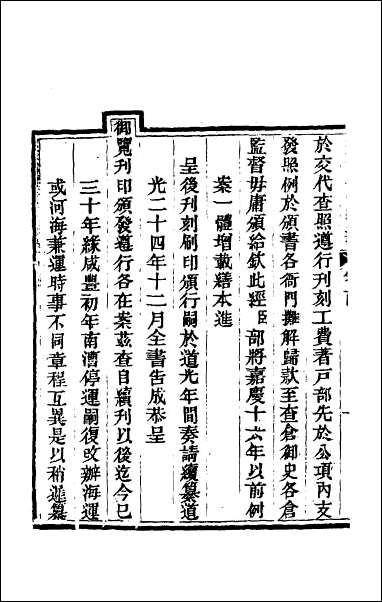 於交代查照遵行刊刻工費著戸部先於公項內支
發照例於頒書各衙門攤解歸款至查倉御史各倉
監督毋庸頒給欽此經臣部將嘉慶十六年以前例
案一體增載繕本進
呈後刊刻刷印頒行嗣於道光年間奏請續纂道
光二十四年十二月全書告成恭呈
御覽刊印頒發遵行各在案茲查自續刊以後迄今已
三十年緣咸豐初年南漕停運嗣復改辦海運
或河海兼運時事不同章程互異是以稍遲纂